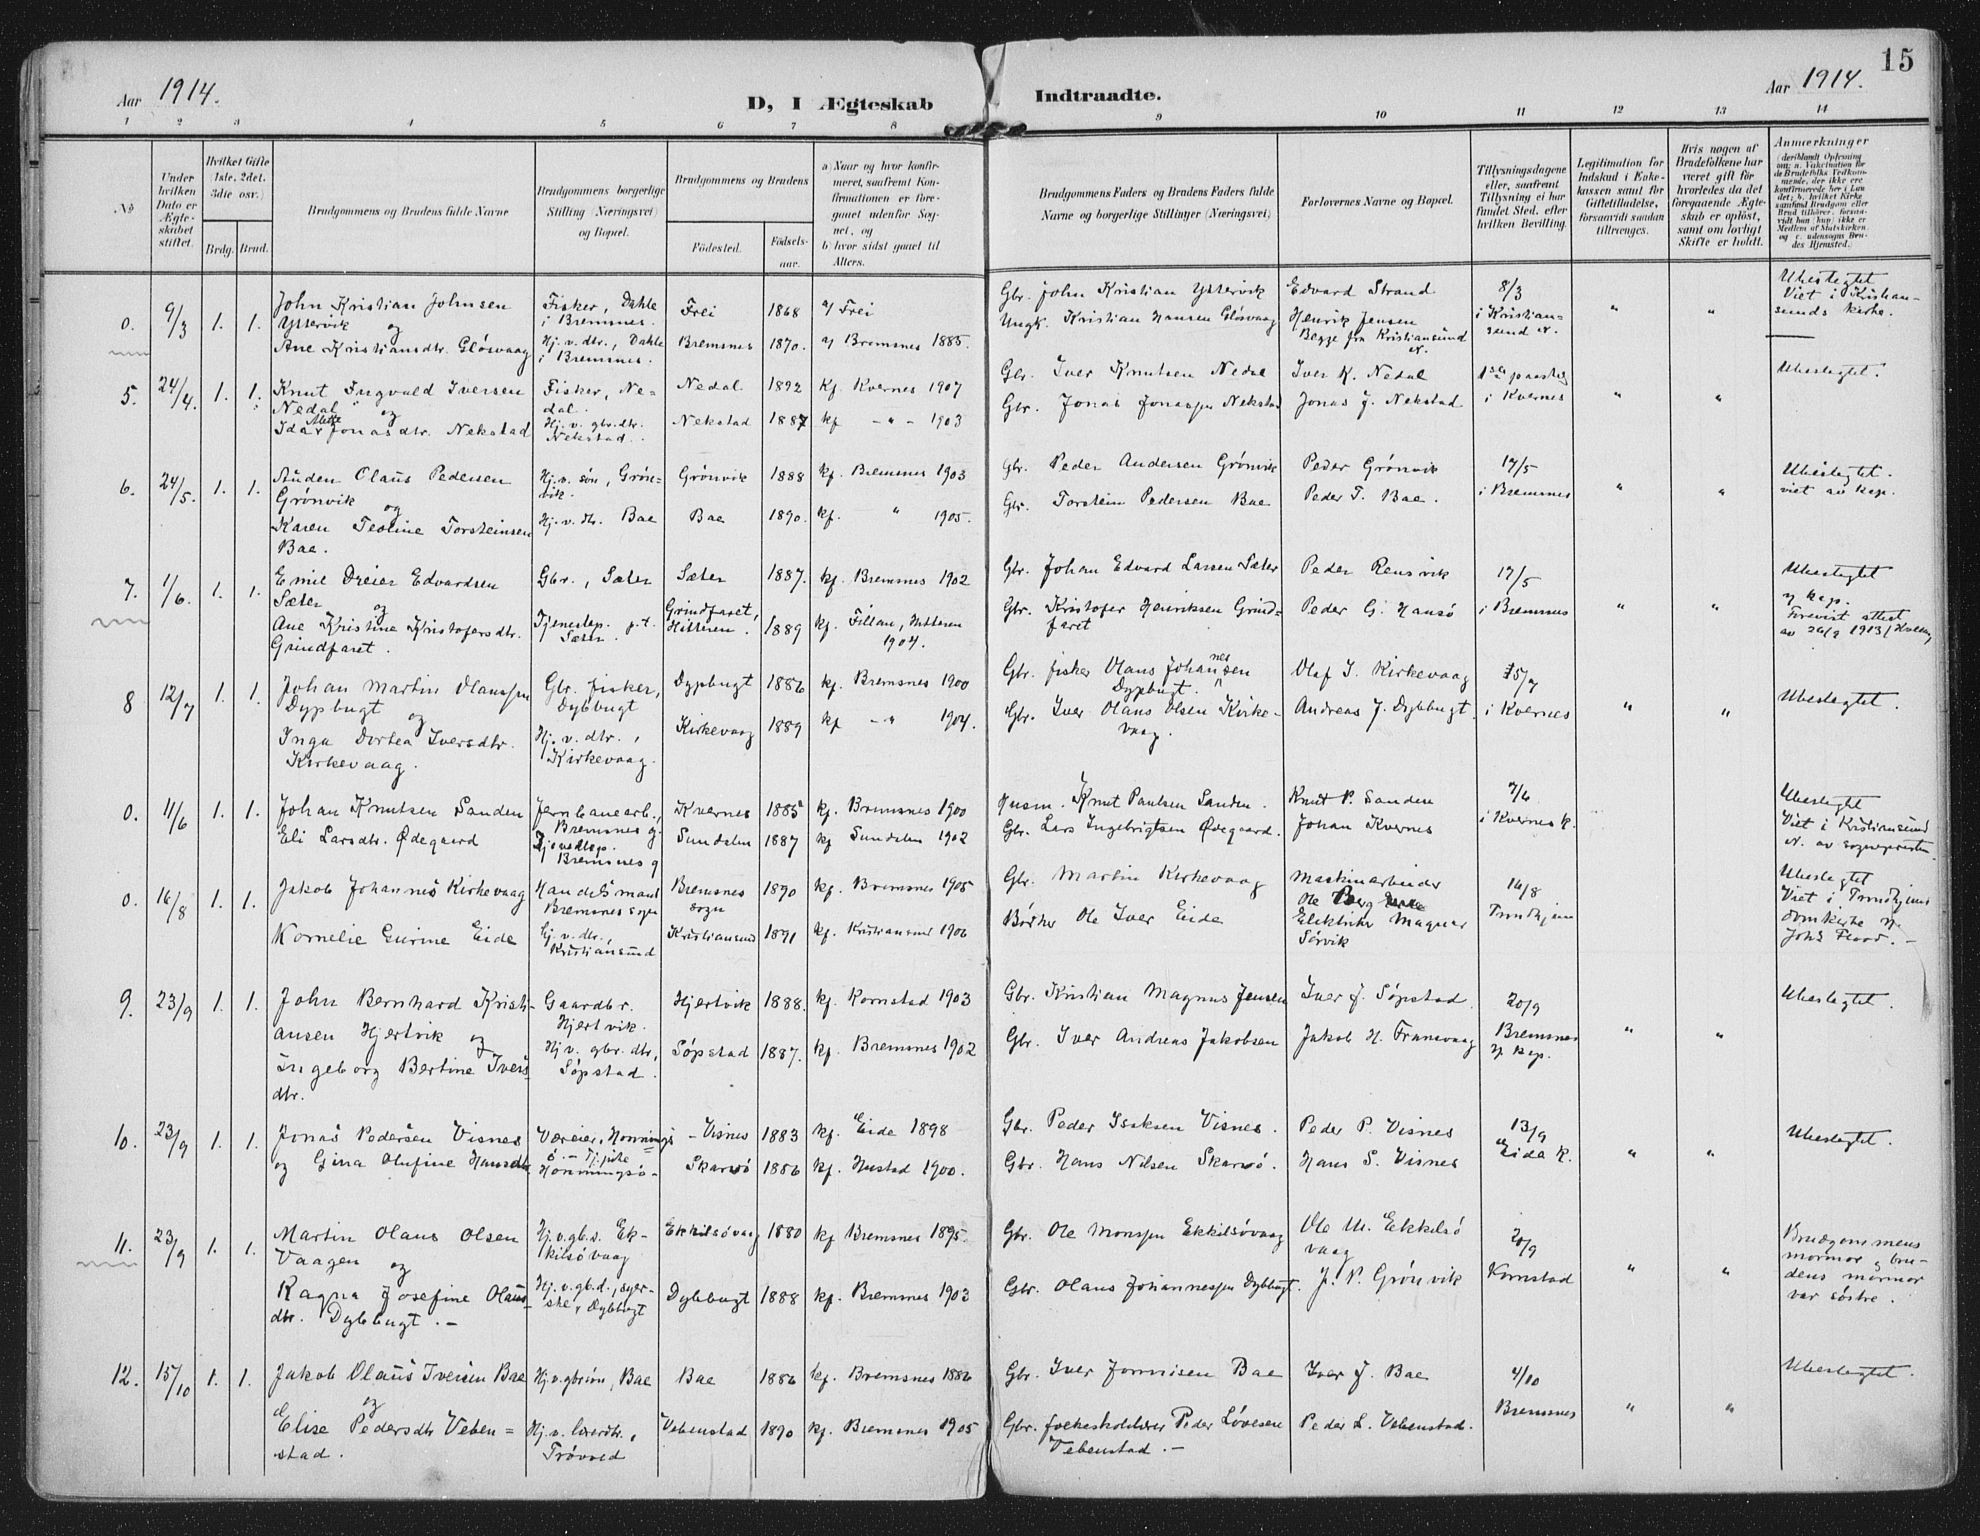 Aar 1914.
D, I Ægteskab Indtraadte.
Aar 1914.
15
1 2 3 4 5 6 7 8 9 10 11 12 13 14
No
Under hvilken Dato er Ægteskabet stiftet.
Hvilket Gifte (1ste, 2det, 3die osv.)
Brdg. Brud.
Brudgommens og Brudens fulde Navne
Brudgommens borgerlige Stilling (Næringsvei) og Bopæl.
Brudgommens og Brudens
Fødested. Fødselsaar.
a) Naar og hvor konfirmeret, saafremt Konfirmationen er foregaaet udenfor Sognet, og
b) hvor sidst gaaet til Alters.
Brudgommens Faders og Brudens Faders fulde Navne og borgerlige Stillinger (Næringsvei)
Forlovernes Navne og Bopæl.
Tillysningsdagene eller, saafremt Tillysning ei har fundet Sted, efter hvilken Bevilling.
Legitimation for Indskud i Enkekassen samt for Giftetilladelse, forsaavidt saadan tiltrænges.
Hvis nogen af Brudefolkene har været gift før hvorledes da det foregaaende Ægteskab er opløst, samt om lovligt Skifte er holdt.
Anmærkninger
0. 9/3 1. 1.
John Kristian Johnsen
Ystervik og
Ane Kristiansdtr. Gløsvaag
Fisker, Dahle
i Bremsnes.
Hj. v. dtr., Dahle
i Bremsnes.
Frei 1868 a/ Frei
Bremsnes 1870. a/ Bremsnes 1885.
Gbr. John Kristian Ystervik
Ungk. Kristian Hansen Gløsvaag
Edvard Strand
Henrik Jensen
Begge fra Kristiansund N.
8/3
i Kristiansund N.
" "
Ubeslegtet
Viet i Kristiansunds kirke.
5. 24/4. 1. 1.
Knut Ingvald Iversen
Nedal og
Ida Mette Jonasdtr. Nekstad
Fisker, Nedal.
Hj. v. gbr. dtr.
Nekstad.
Nedal 1892 Kf. Kvernes 1907
Nekstad 1887 kf - " - 1903
Gbr. Iver Knutsen Nedal
Gbr. Jonas Jonassen Nekstad
Iver K. Nedal
Jonas J. Nekstad
i Kvernes
" "
Ubeslegtet.
6. 24/5. 1. 1.
Auden Olaus Pedersen
Grønvik og
Karen Teoline Torsteinsen
Bae.
Hj. v. søn, Grønvik.
Hj. v. dtr. Bae
Grønvik 1888 kf. Bremsnes 1903
Bae 1890. kf. " 1905.
Gbr. Peder Andersen Grønvik
Gbr. Torstein Pedersen Bae
Peder Grønvik
Peder T. Bae.
17/5
i Bremsnes
" "
Ubeslegtet.
viet av kap.
7. 1/6. 1. 1.
Emil Dreier Edvardsen
Sæter og
Ane Kristine Kristofersdtr.
Grindfaret.
Gbr., Sæter
Tjenestep. p.t.
Sæter.
Sæter 1887. kf. Bremsnes 1902
Grindfaret, Hitteren. 1889 kf. Fillan, Hitteren 1904.
Gbr. Johan Edvard Larsen Sæter
Gbr. Kristofer Henriksen Grindfaret
Peder Rensvik
Peder G. Hansø
17/5
i Bremsnes
" "
Ubeslegtet
v/ kap.
Forevist attest
8 12/7 1. 1.
Johan Martin Olaussen
Dypbugt og
Inga Dortea Iversdtr.
Kirkevaag.
Gbr. fisker,
Dybbugt
Hj. v. dtr.,
Kirkevaag.
Dypbugt 1886 kf. Bremsnes 1900
Kirkevaag 1889 kf - " 1904.
Gbr. fisker Olaus Johannessen
Dypbugt.
Gbr. Iver Olaus Olsen Kirkevaag.
Olaf I. Kirkevaag
Andreas J. Dybbugt.
5/7
i Kvernes
" "
Ubeslegtet.
0. 11/6 1. 1.
Johan Knutsen Sanden
Eli Larsdtr. Ødegaard
Jernbanearb.,
Bremsnes g.
Bremsnes g
Kvernes 1885 kf. Bremsnes 1900
Sundalen 1887 kf Sundalen 1902
Husm. Knut Paulsen Sanden.
Gbr. Lars Ingebrigtsen Ødegaard.
Knut P. Sanden
Johan Kvernes
7/6
i Kvernes k.
Ubeslegtet
Viet i Kristiansund
N. av sogneprosten.
0. 16/8 1. 1.
Jakob Johannes Kirkevaag
Kornelie Gurine Eide
Handelsmand
Bremsnes sogn
Hj. v. dtr.,
Kristiansund
Bremsnes sogn 1890 kf. Bremsnes 1905
Kristiansund 1891 kf. Kristiansund 1906
Gbr. Martin Kirkevaag
Bødker Ole Iver Eide
Maskinarbeider
Ole Berg
Elektriker Magnus
Sørvik
16/8
Trondhjem
Ubeslegtet
Viet i Trondhjems
domkirke v/
Johs Flood.
9. 23/9 1. 1.
John Bernhard Kristiansen Hjertvik og
Ingeborg Bertine Iversdtr.
Gaardbr.
Hjertvik.
Hj v. gbr. dtr,
Søpstad.
Hjertvik 1888. kf. Kornstad 1903
Søpstad 1887. kf. Bremsnes 1902
Gbr. Kristian Magnus Jensen
Gbr. Iver Andreas Jakobsen
Iver J. Søpstad
Jakob H. Fransvaag
20/9
Bremsnes
v/ kap.
" "
Ubeslegtet.
10. 23/9 1. 1.
Jonas Pedersen Visnes
og Gina Olufine Hansdtr
Væreier, Honningsø. - Tj. pike
Honningsø -
Visnes 1883 kf. Eide 1898
Skarsø 1886 kf. Hustad 1900.
Gbr. Peder Isaksen Visnes.
Gbr. Hans Nilsen Skarsø.
Peder P. Visnes
Hans S. Visnes
13/9
Eide k.
" "
Ubeslegtet.
11. 23/9 1. 1.
Martin Olaus Olsen
Vaagen og
Ragna Josefine Olausdtr. Dybbugt. -
Hj. v. gb. s. Ekkilsøvaag
Hj. v. gb. d., syerske, Dybbugt
Ekkilsøvaag 1880 kf Bremsnes 1895.
Dybbugt 1888 kf. Bremsnes 1903
Gbr. Ole Monssen Ekkilsøvaag
Gbr. Olaus Johannessen Dybbugt.
Ole M. Ekkilsøvaag
J. P. Grønvik
20/9
Kornstad
" "
Brudgommens
mormor og brudens mormor
var søstre.
12. 15/10 1. 1.
Jakob Olaus Iversen Bae
og
Elise Pedersdtr Vebenstad.
Hj. v. gbr søn, Bae
Hj. v. lærerdtr.,
Trøvold
Bae 1886 kf. Bremsnes 1886
Vebenstad 1890 kf. Bremsnes 1905
Gbr. Iver Jonnisen Bae
Gbr. folkeskolelærer Peder Løvesen
Vebenstad. -
Iver J. Bae
Peder L. Vebenstad.
4/10
Bremsnes
" "
Ubeslegtet.